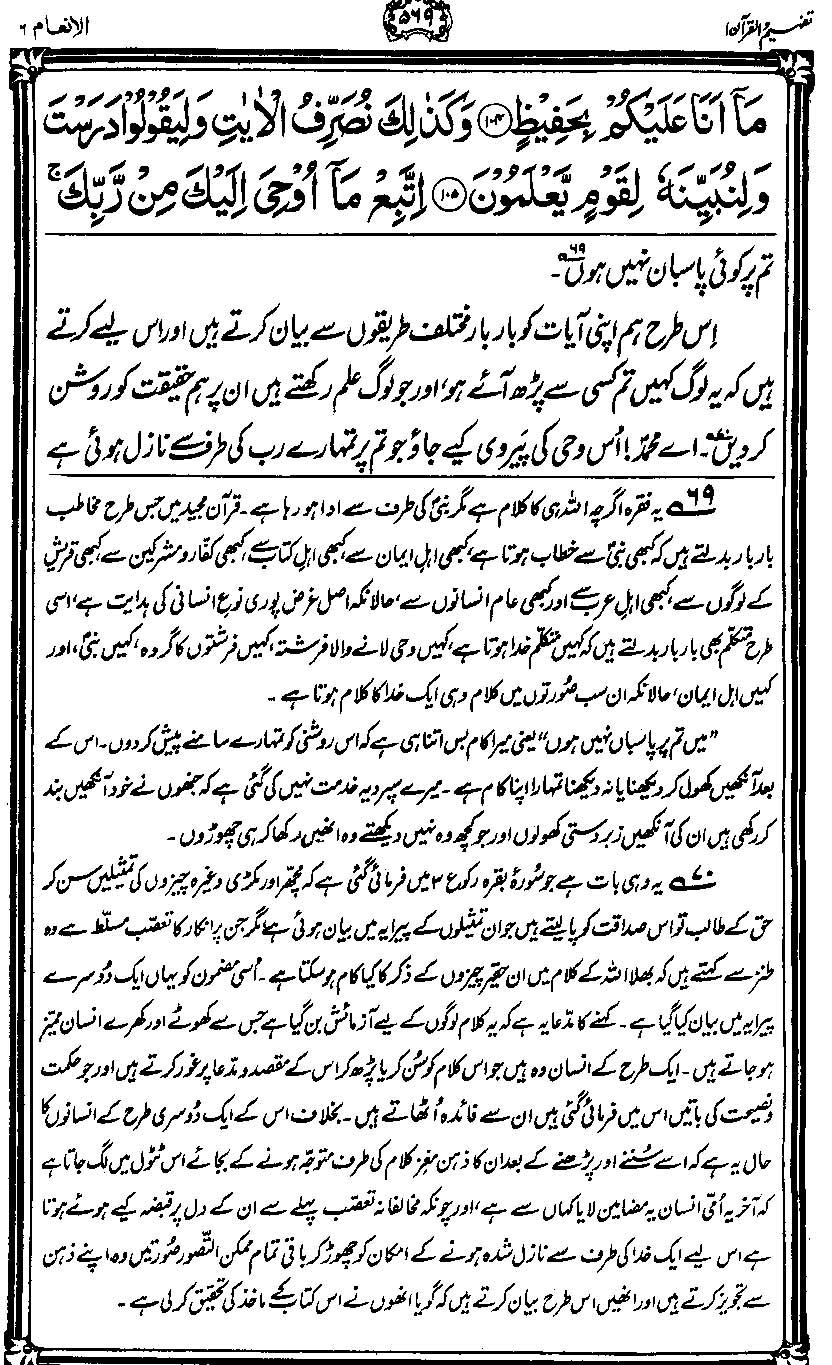 تفہیم القرآن ۱
۵۶۹
الانعام ۶
مَاۤ اَنَا عَلَيْكُمْ بِحَفِيْظٍ ﴿۱۰۴﴾ وَكَذٰلِكَ نُصَرِّفُ الْاٰيٰتِ وَلِيَقُوْلُوْا دَرَسْتَ
وَلِنُبَيِّنَهٗ لِقَوْمٍ يَّعْلَمُوْنَ ﴿۱۰۵﴾ اِتَّبِعْ مَاۤ اُوْحِيَ اِلَيْكَ مِنْ رَّبِّكَ ۚ
تم پر کوئی پاسبان نہیں ہوں۶۹۔
اِس طرح ہم اپنی آیات کو بار بار مختلف طریقوں سے بیان کرتے ہیں اور اس لیے کرتے
ہیں کہ یہ لوگ کہیں تم کسی سے پڑھ آئے ہو، اور جو لوگ علم رکھتے ہیں ان پر ہم حقیقت کو روشن
کر دیں۷۰۔ اے محمدؐ! اُس وحی کی پیروی کیے جاؤ جو تم پر تمہارے رب کی طرف سے نازل ہوئی ہے
۶۹ یہ فقرہ اگرچہ اللہ ہی کا کلام ہے مگر نبیؐ کی طرف سے ادا ہو رہا ہے۔ قرآن مجید میں جس طرح مخاطب
بار بار بدلتے ہیں کہ کبھی نبیؐ سے خطاب ہوتا ہے، کبھی اہلِ ایمان سے، کبھی اہلِ کتاب سے، کبھی کفار و مشرکین سے، کبھی قریش
کے لوگوں سے، کبھی اہلِ عرب سے اور کبھی عام انسانوں سے، حالانکہ اصل غرض پوری نوعِ انسانی کی ہدایت ہے، اسی
طرح متکلّم بھی بار بار بدلتے ہیں کہ کہیں متکلّم خدا ہوتا ہے، کہیں وحی لانے والا فرشتہ، کہیں فرشتوں کا گروہ، کہیں نبیؐ، اور
کہیں اہل ایمان، حالانکہ ان سب صُورتوں میں کلام وہی ایک خدا کا کلام ہوتا ہے۔
”میں تم پر پاسباں نہیں ہوں“ یعنی میرا کام بس اتنا ہی ہے کہ اس روشنی کو تمہارے سامنے پیش کر دوں۔ اس کے
بعد آنکھیں کھول کر دیکھنا یا نہ دیکھنا تمہارا اپنا کام ہے۔ میرے سپرد یہ خدمت نہیں کی گئی ہے کہ جنھوں نے خود آنکھیں بند
کر رکھی ہیں ان کی آنکھیں زبردستی کھولوں اور جو کچھ وہ نہیں دیکھتے وہ انھیں دکھا کر ہی چھوڑوں۔
۷۰ یہ وہی بات ہے جو سُورۂ بقرہ رکوع ۳ میں فرمائی گئی ہے کہ مچھر اور مکڑی وغیرہ چیزوں کی تمثیلیں سن کر
حق کے طالب تو اس صداقت کو پا لیتے ہیں جو ان تمثیلوں کے پیرایہ میں بیان ہوئی ہے، مگر جن پر انکار کا تعصّب مسلّط ہے وہ
طنز سے کہتے ہیں کہ بھلا اللہ کے کلام میں ان حقیر چیزوں کے ذکر کا کیا کام ہو سکتا ہے۔ اُسی مضمون کو یہاں ایک دُوسرے
پیرایہ میں بیان کیا گیا ہے۔ کہنے کا مدّعا یہ ہے کہ یہ کلام لوگوں کے لیے آزمائش بن گیا ہے جس سے کھوٹے اور کھرے انسان ممیّز
ہو جاتے ہیں۔ ایک طرح کے انسان وہ ہیں جو اس کلام کو سُن کر یا پڑھ کر اس کے مقصد و مدّعا پر غور کرتے ہیں اور جو حکمت
و نصیحت کی باتیں اس میں فرمائی گئی ہیں ان سے فائدہ اُٹھاتے ہیں۔ بخلاف اس کے ایک دُوسری طرح کے انسانوں کا
حال یہ ہے کہ اسے سُننے اور پڑھنے کے بعد ان کا ذہن مغزِ کلام کی طرف متوجّہ ہونے کے بجائے اس ٹٹول میں لگ جاتا ہے
کہ آخر یہ اُمّی انسان یہ مضامین لایا کہاں سے ہے، اور چونکہ مخالفانہ تعصّب پہلے سے ان کے دل پر قبضہ کیے ہوئے ہوتا
ہے اس لیے ایک خدا کی طرف سے نازل شدہ ہونے کے امکان کو چھوڑ کر باقی تمام ممکن التّصور صُورتیں وہ اپنے ذہن
سے تجویز کرتے ہیں اور انھیں اس طرح بیان کرتے ہیں کہ گویا انھوں نے اس کتاب کے ماخذ کی تحقیق کر لی ہے۔